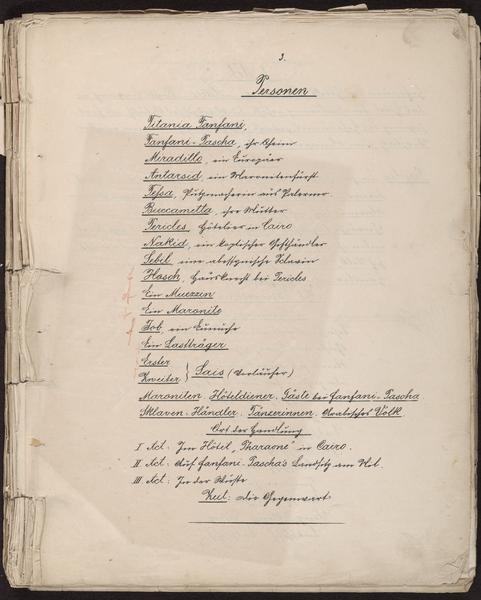 3.
Personen
Titania Fanfani,
Fanfani-Pascha, ihr Oheim
Miradillo, ein Europäer
Antarsid, ein Maronitenfürst
Tessa, Putzmacherin aus Palermo
Buccametta, ihre Mutter
Pericles, Hôtelier in Cairo
Nakid, ein koptischer Gifthändler
Sebil, eine abessynische Sclavin
Hosch, Hausknecht bei Pericles
Ein Muezzin
Ein Maronite
Job, ein Eunuche
Ein Lastträger
Erster
Zweiter } Sais (Vorläufer)
Maroniten. Hôteldiener. Gäste bei Fanfani-Pascha
Sklaven-Händler. Tänzerinnen. Arabisches Volk
Ort der Handlung
I Act: Im Hôtel „Pharaone" in Cairo.
II. Act: Auf Fanfani-Pascha's Landsitz am Nil.
III. Act: In der Wüste
Zeit: die Gegenwart